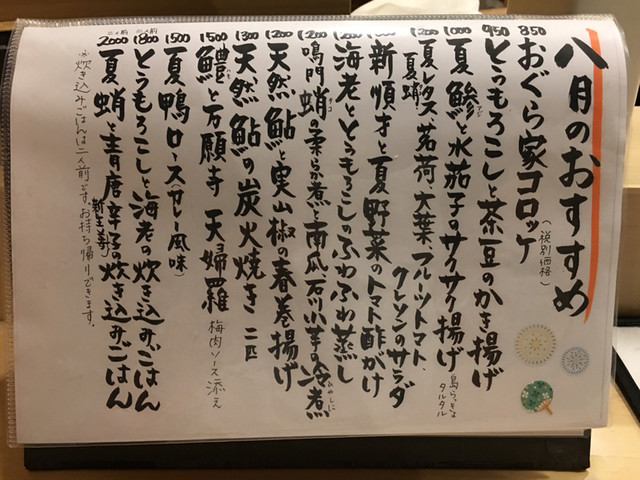 八月のおすすめ
(税別価格)
850 おぐら家コロッケ
950 とうもろこしと茶豆のかき揚げ
1000 夏鯵と水茄子のサクサク揚げ
アジ
島らっきょタルタル
1200 夏レタス、茗荷、大葉、フルーツトマト、
夏蛸、クレソンのサラダ
新順才と夏野菜のトマト酢がけ
1200 海老ととうもろこしのふわふわ蒸し
1200 鳴門蛸の柔らか煮と南瓜、石川小芋の冷煮
タコ
ひやしに
1200 天然鮎と実山椒の春巻揚げ
1300 天然鮎の炭火焼き 二匹
1500 鱧と万願寺 天婦羅 梅肉ソース添え
はも
1500 夏鴨ロース(カレー風味)
1800 とうもろこしと海老の炊き込みごはん
2000 夏蛸と青唐辛子の炊き込みごはん
新生姜
※炊き込みごはんは二人前です。お持ち帰りできます。